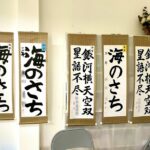 海のさち
海のさち
銀河横天空双
星語不尽
海のさち
銀河横天空双
星語不尽